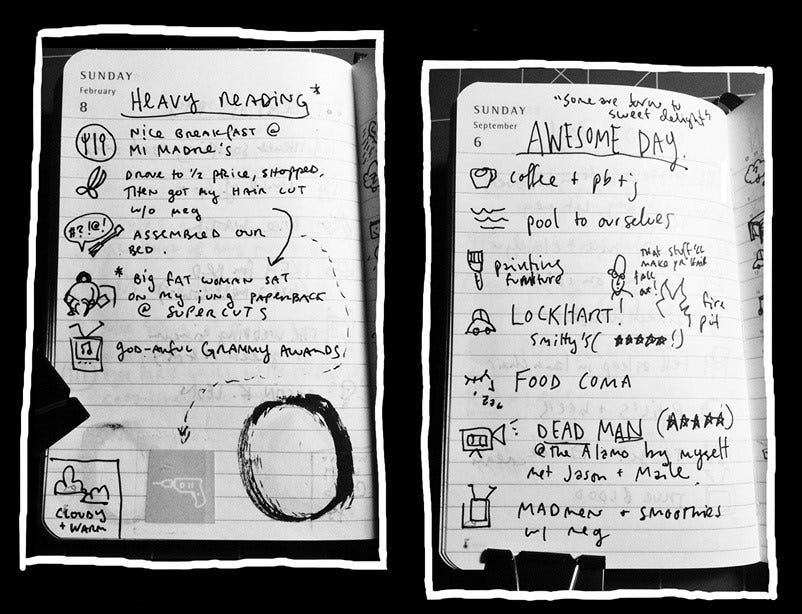 SUNDAY
February
8
HEAVY READING*
NICE BREAKFAST @
MI MADRE'S
DROVE TO 1/2 PRICE, SHOPPED,
THEN GOT MY HAIR CUT
W/O MEG
#?!@!
ASSEMBLED OUR
BED.
* BIG FAT WOMAN SAT
ON MY JUNG PAPERBACK
@ SUPERCUTS
GOD-AWFUL GRAMMY AWARDS
CLOUDY
+ WARM
SUNDAY
September
6
"some are born to
sweet delight"
AWESOME DAY.
coffee + pb+j
pool to ourselves
painting
furniture
that stuff'll
make yr hair
fall
out!
fire
pit
LOCKHART.
Smitty's (★★★★★!)
zzz
FOOD COMA
DEAD MAN (★★★★★)
@ the Alamo by myself
met Jason + Maile.
MADMEN + SMOOTHIES
w/ meg